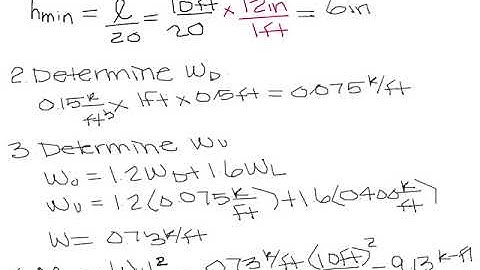 hmin = l/20 = 10ft/20 × 12in/1ft = 6in
2. Determine WD
0.15 k/ft³ × 1ft × 0.5ft = 0.075 k/ft
3. Determine WU
WU = 1.2WD + 1.6WL
WU = 1.2(0.075 k/ft) + 1.6(0.400 k/ft)
W = 0.73 k/ft
0.73 k/ft (10ft)² = 9.13 k-ft